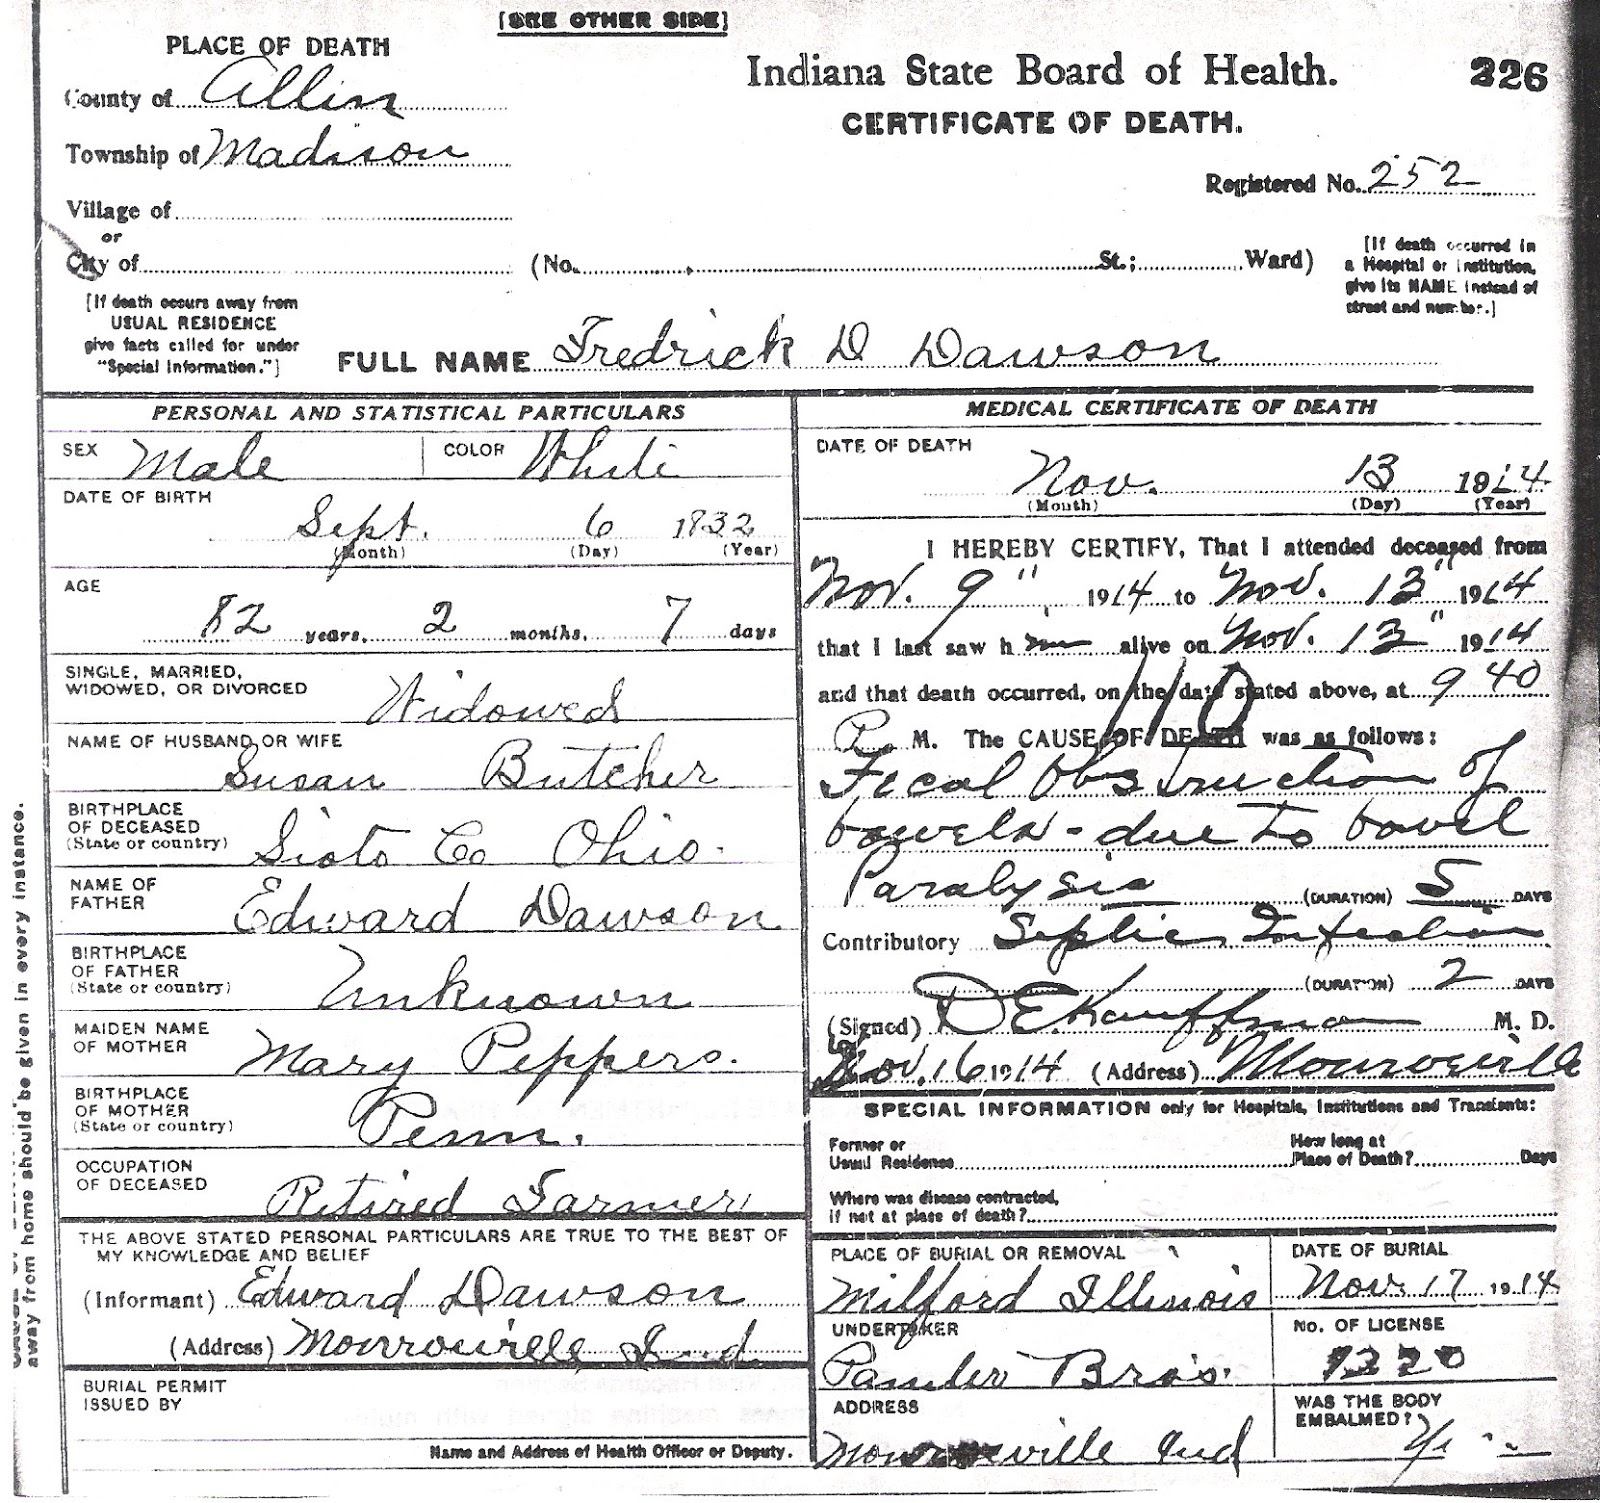 [SEE OTHER SIDE]
PLACE OF DEATH
County of Allin
Township of Madison
Village of
or
City of
(No. St.; Ward)
[If death occurs away from
USUAL RESIDENCE
give facts called for under
"Special Information."]
Indiana State Board of Health.
226
CERTIFICATE OF DEATH.
Registered No. 252
[If death occurred in
a Hospital or Institution,
give its NAME instead of
street and number.]
FULL NAME Fredrick D Dawson
PERSONAL AND STATISTICAL PARTICULARS
SEX Male COLOR White
DATE OF BIRTH
Sept. 6 1832
(Month) (Day) (Year)
AGE
82 years, 2 months, 7 days
SINGLE, MARRIED,
WIDOWED, OR DIVORCED Widowed
NAME OF HUSBAND OR WIFE
Susan Butcher
BIRTHPLACE
OF DECEASED
(State or country) Sioto Co Ohio.
NAME OF
FATHER Edward Dawson
BIRTHPLACE
OF FATHER
(State or country) Unknown
MAIDEN NAME
OF MOTHER Mary Peppers.
BIRTHPLACE
OF MOTHER
(State or country) Penn.
OCCUPATION
OF DECEASED Retired Farmer
THE ABOVE STATED PERSONAL PARTICULARS ARE TRUE TO THE BEST OF
MY KNOWLEDGE AND BELIEF
(Informant) Edward Dawson
(Address) Monroville Ind.
BURIAL PERMIT
ISSUED BY
Name and Address of Health Officer or Deputy.
MEDICAL CERTIFICATE OF DEATH
DATE OF DEATH
Nov. 13 1914
(Month) (Day) (Year)
I HEREBY CERTIFY, That I attended deceased from
Nov. 9" 1914 to Nov. 13" 1914
that I last saw him alive on Nov. 13" 1914
and that death occurred, on the date stated above, at 9 40
P. M. The CAUSE OF DEATH was as follows:
110
Fecal Obstruction of
bowels - due to bowel
Paralysis (DURATION) 5 DAYS
Contributory Septic Infection
(DURATION) 2 DAYS
(Signed) D E Kauffman M. D.
Nov. 16 1914 (Address) Monroeville
SPECIAL INFORMATION only for Hospitals, Institutions and Transients:
Former or
Usual Residence
How long at
Place of Death? Days
Where was disease contracted,
if not at place of death?
PLACE OF BURIAL OR REMOVAL
Milford Illinois
DATE OF BURIAL
Nov. 17 1914
UNDERTAKER
Bros.
No. OF LICENSE
1320
ADDRESS
Monroeville Ind
WAS THE BODY
EMBALMED?
away from home should be given in every instance.